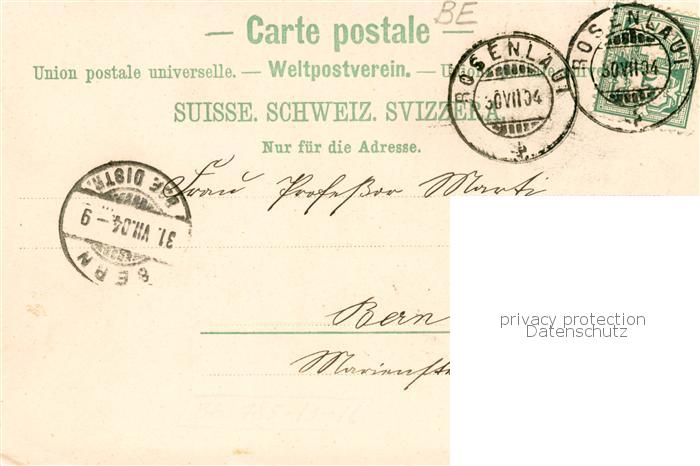 BE
— Carte postale —
Union postale universelle. — Weltpostverein. —
SUISSE. SCHWEIZ. SVIZZERA.
Nur für die Adresse.
ROSENLAUI
30 VII 04
ROSENLAUI
30 VII 04
BERN
31. VII. 04 – 9
BRF. DISTR.
Frau Profeßor Marti
Bern
privacy protection
Datenschutz